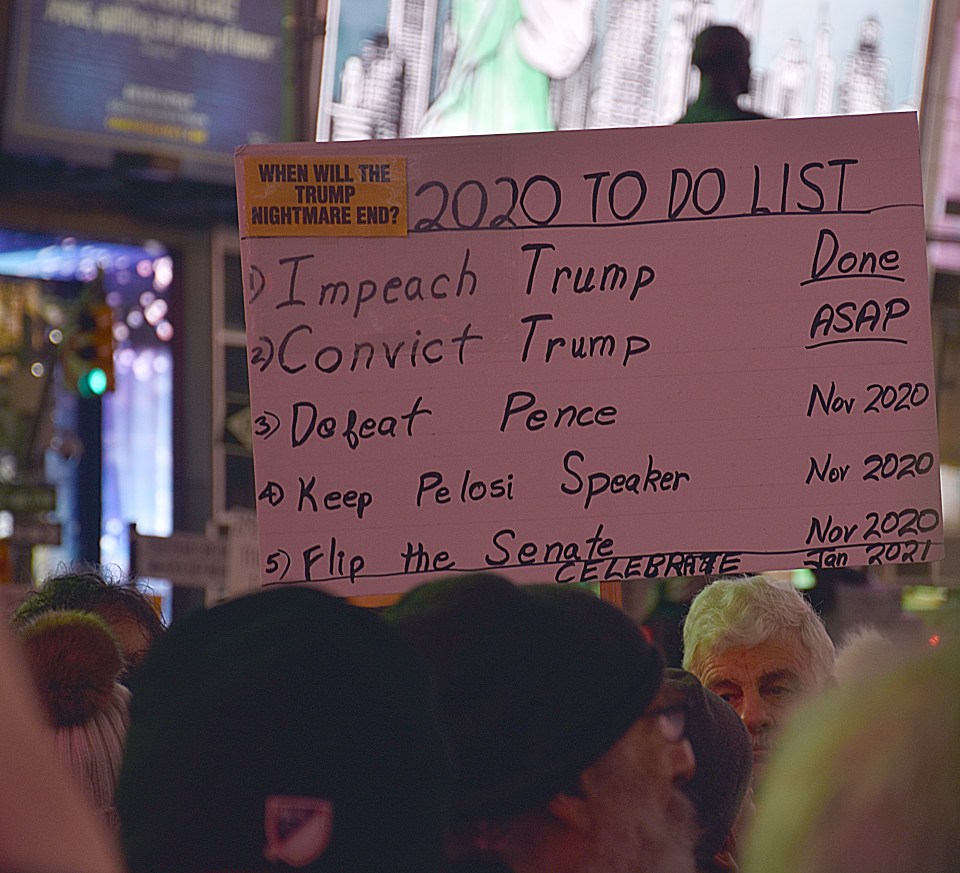 WHEN WILL THE
TRUMP
NIGHTMARE END?
2020 TO DO LIST
1) Impeach Trump Done
2) Convict Trump ASAP
3) Defeat Pence Nov 2020
4) Keep Pelosi Speaker Nov 2020
5) Flip the Senate Nov 2020
CELEBRATE Jan 2021